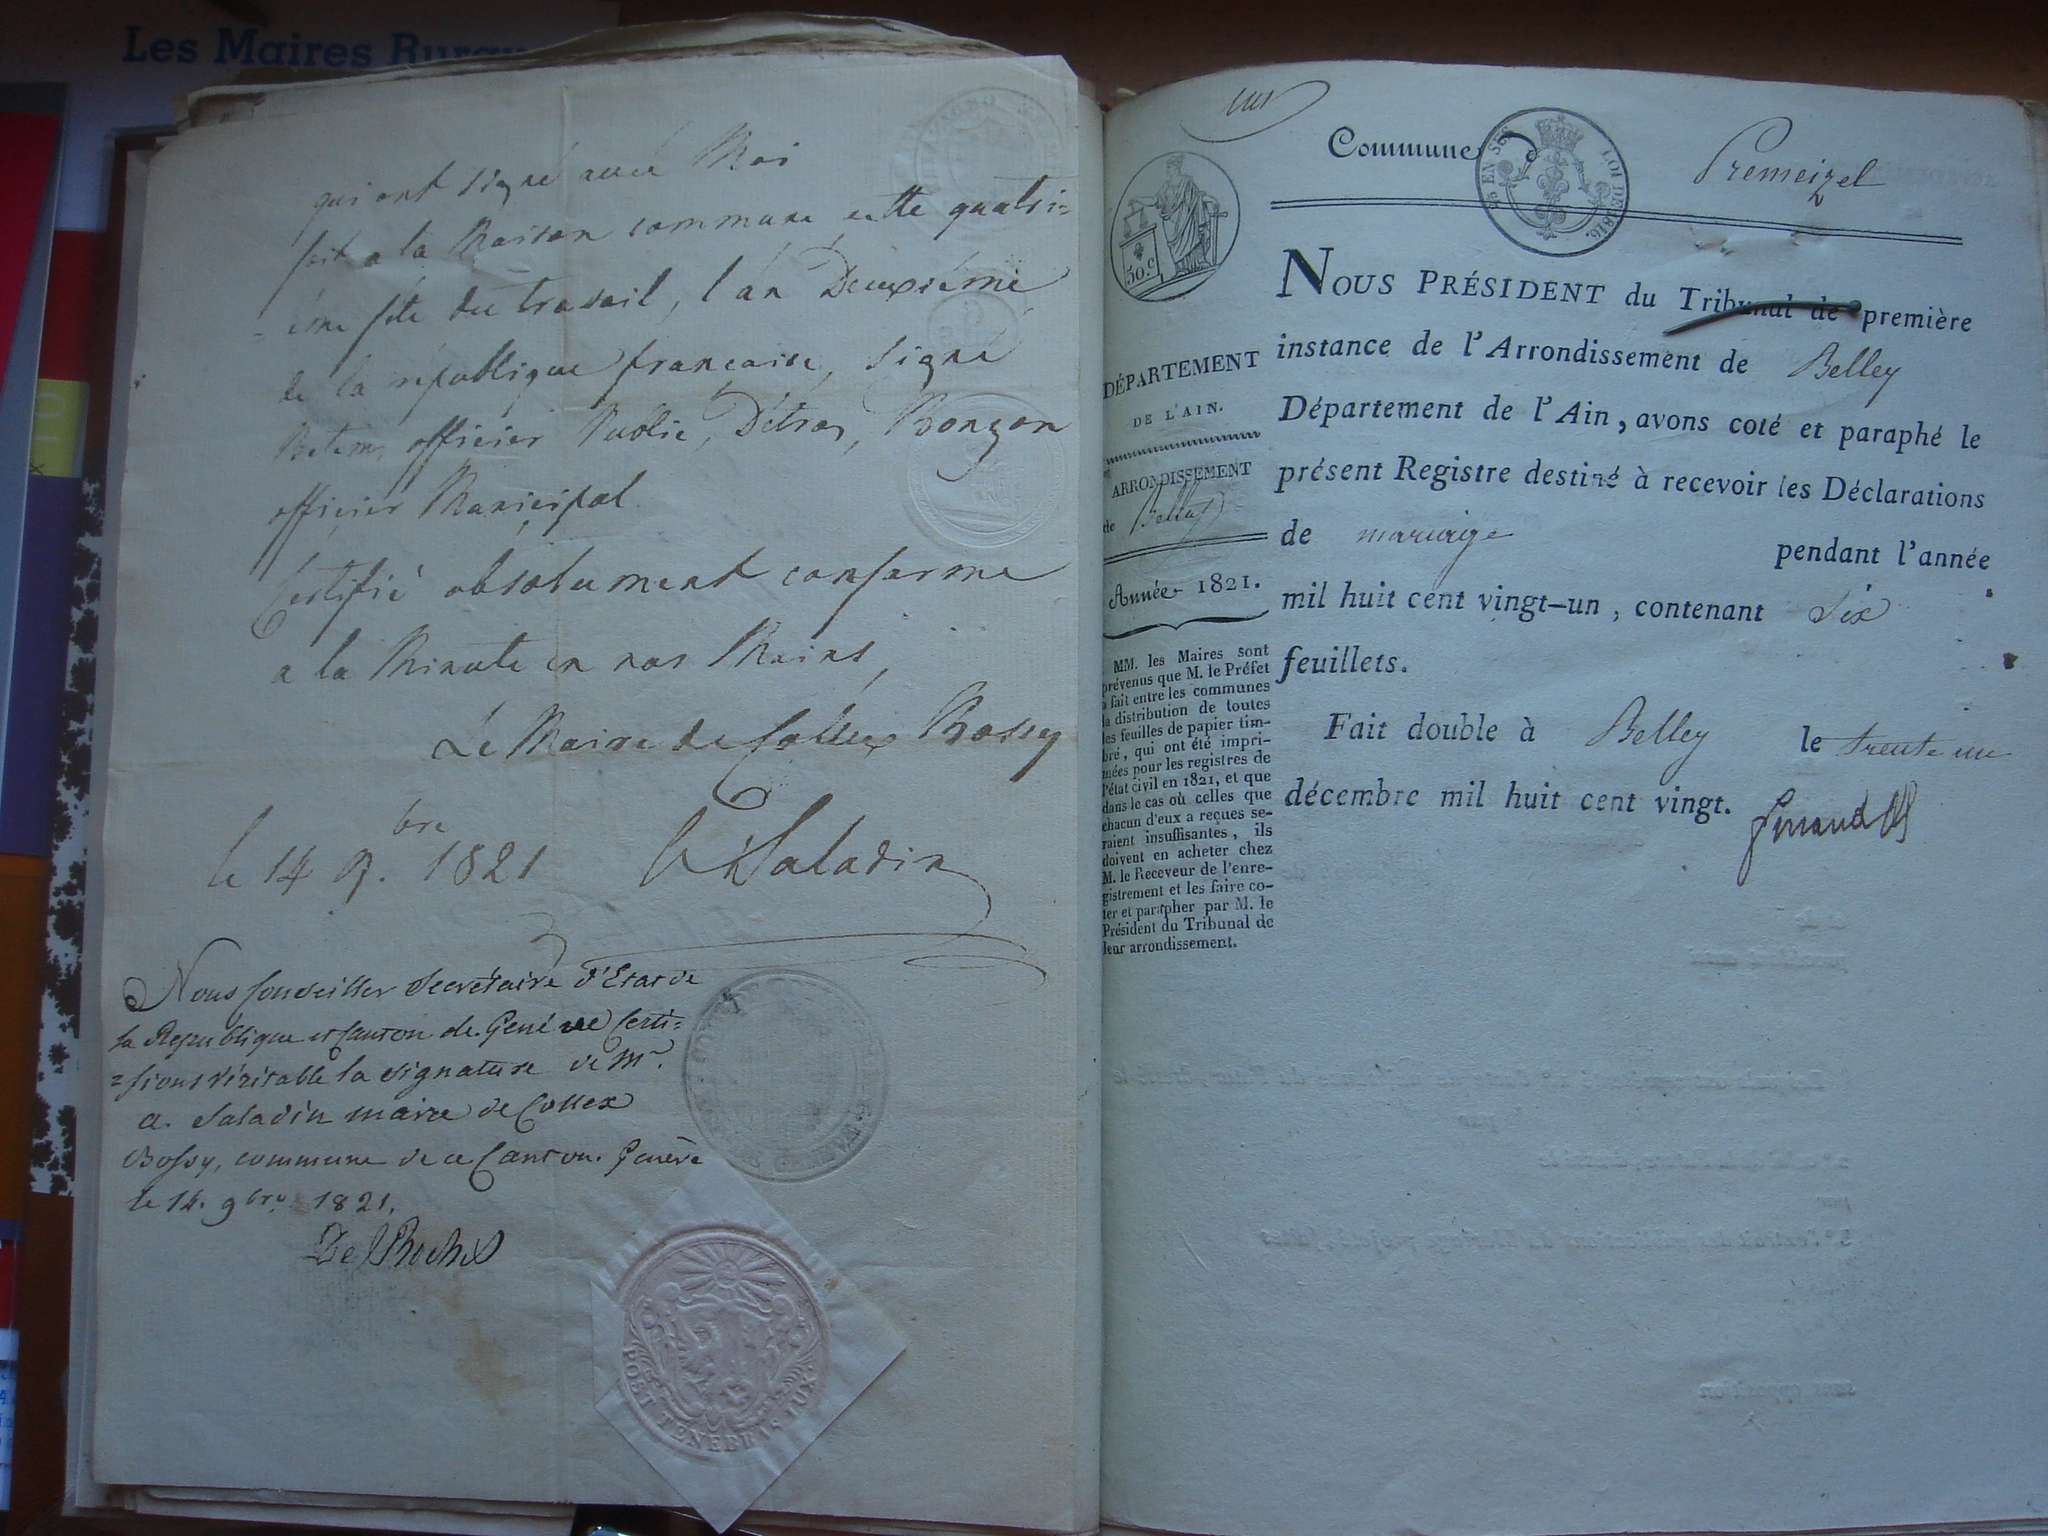 Les Maires Rurau
qui ont signé avec Moi
fait a la Maison commune cette quatri=
= éme fete du travail, l'an Deuxiémé
de la république francaise, signé
Betems officier Public, Détraz, Bonzon
officier Municipal
Certifié absolument conforme
a la Minute en nos Mains,
Le Maire de Collex Bossy
le 14 9.bre 1821 Saladin
Nous Conseiller Secrétaire d'Etat de
la Republique et Canton de Genève Certi=
=fions véritable la signature de Mr.
a. Saladin maire de Collex
Bossy, commune de ce Canton. Genève
le 14. 9bre. 1821.
POST TENEBRAS LUX
Commune Premeizel
LOI DE 1816.
50.c
DÉPARTEMENT
DE L'AIN.
ARRONDISSEMENT
de Belley
Année 1821.
MM. les Maires sont
prévenus que M. le Préfet
a fait entre les communes
la distribution de toutes
les feuilles de papier tim-
bré, qui ont été impri-
mées pour les registres de
l'état civil en 1821, et que
dans le cas où celles que
chacun d'eux a reçues se-
raient insuffisantes, ils
doivent en acheter chez
M. le Receveur de l'enre-
gistrement et les faire co-
ter et parapher par M. le
Président du Tribunal de
leur arrondissement.
NOUS PRÉSIDENT du Tribunal de première
instance de l'Arrondissement de Belley
Département de l'Ain, avons coté et paraphé le
présent Registre destiné à recevoir les Déclarations
de mariage pendant l'année
mil huit cent vingt-un, contenant Six
feuillets.
Fait double à Belley le trente un
décembre mil huit cent vingt.